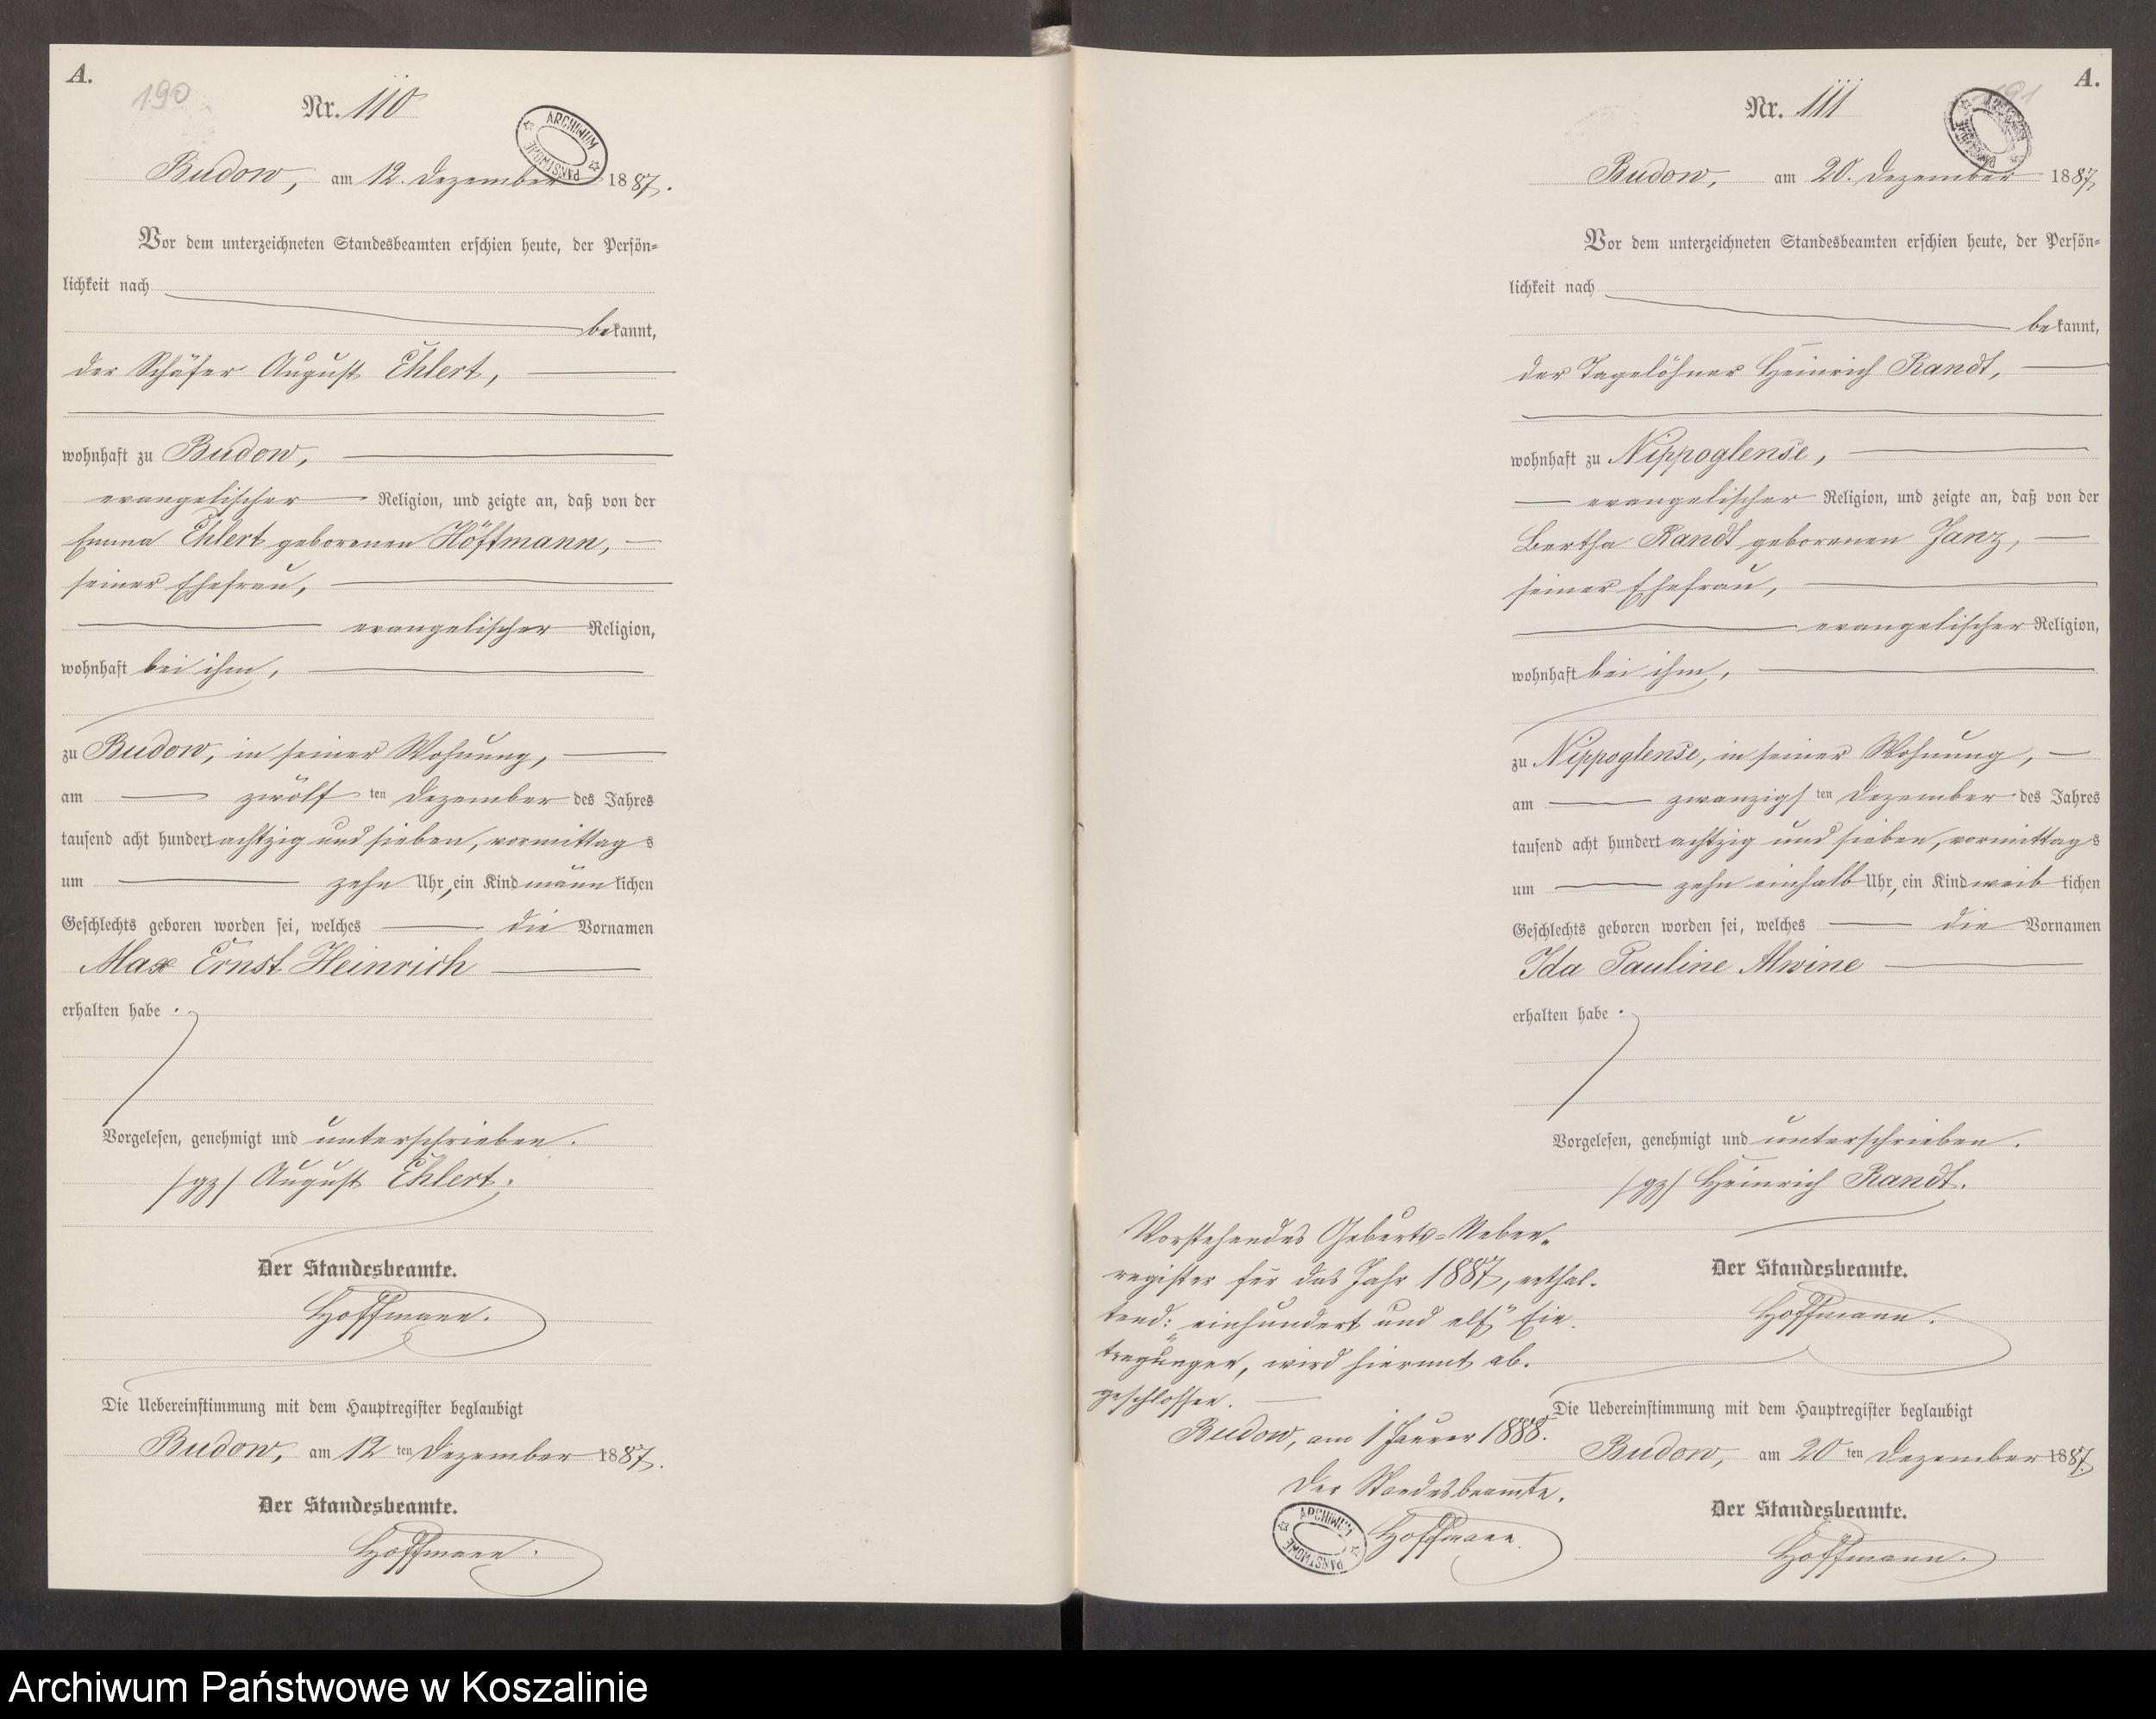 A.
190
Nr. 110
ARCHIWUM PAŃSTWOWE
Budow, am 12. Dezember 1887.
Vor dem unterzeichneten Standesbeamten erschien heute, der Persön-
lichkeit nach
bekannt,
der Schäfer August Ehlert,
wohnhaft zu Budow,
evangelischer Religion, und zeigte an, daß von der
Emma Ehlert geborenen Höftmann,
seiner Ehefrau,
evangelischer Religion,
wohnhaft bei ihm,
zu Budow, in seiner Wohnung,
am zwölf ten Dezember des Jahres
tausend acht hundert achtzig und sieben, vormittags
um zehn Uhr, ein Kind männlichen
Geschlechts geboren worden sei, welches die Vornamen
Max Ernst Heinrich
erhalten habe.
Vorgelesen, genehmigt und unterschrieben.
/gz/ August Ehlert.
Der Standesbeamte.
Hoffmann.
Die Uebereinstimmung mit dem Hauptregister beglaubigt
Budow, am 12 ten Dezember 1887.
Der Standesbeamte.
Hoffmann.
A.
191
Nr. 111
ARCHIWUM PAŃSTWOWE
Budow, am 20. Dezember 1887.
Vor dem unterzeichneten Standesbeamten erschien heute, der Persön-
lichkeit nach
bekannt,
der Tagelöhner Heinrich Randt,
wohnhaft zu Nippoglense,
evangelischer Religion, und zeigte an, daß von der
Bertha Randt geborenen Janz,
seiner Ehefrau,
evangelischer Religion,
wohnhaft bei ihm,
zu Nippoglense, in seiner Wohnung,
am zwanzigsten Dezember des Jahres
tausend acht hundert achtzig und sieben, vormittags
um zehn einhalb Uhr, ein Kind weiblichen
Geschlechts geboren worden sei, welches die Vornamen
Ida Pauline Alwine
erhalten habe.
Vorgelesen, genehmigt und unterschrieben.
/gz/ Heinrich Randt.
Der Standesbeamte.
Hoffmann.
Die Uebereinstimmung mit dem Hauptregister beglaubigt
Budow, am 20 ten Dezember 1887.
Der Standesbeamte.
Hoffmann.
Vorstehendes Geburts-Neben-
register für das Jahr 1887, enthal-
tend: "einhundert und elf" Ein-
tragungen, wird hiermit ab-
geschlossen.
Budow, am 1 Januar 1888.
Der Standesbeamte.
Hoffmann.
ARCHIWUM PAŃSTWOWE
Archiwum Państwowe w Koszalinie